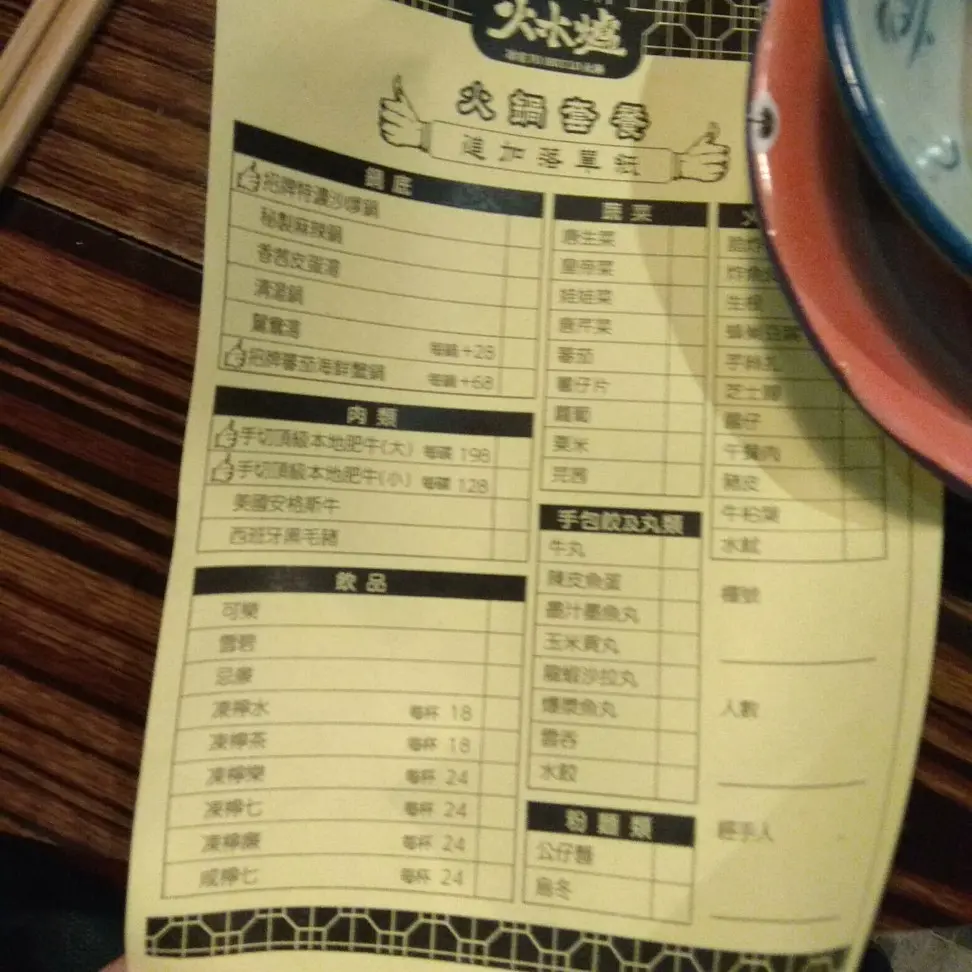 火鍋套餐
進加落單紙
鍋底
招牌特濃沙嗲鍋
秘製麻辣鍋
香茜皮蛋湯
清湯鍋
鴛鴦湯 每鍋+28
招牌蕃茄海鮮蟹鍋 每鍋+68
肉類
手切頂級本地肥牛(大) 每碟 198
手切頂級本地肥牛(小) 每碟 128
美國安格斯牛
西班牙黑毛豬
飲品
可樂
雪碧
忌廉
凍檸水 每杯 18
凍檸茶 每杯 18
凍檸樂 每杯 24
凍檸七 每杯 24
凍檸廉 每杯 24
咸檸七 每杯 24
蔬菜
唐生菜
皇帝菜
娃娃菜
唐芹菜
蕃茄
薯仔片
蘿蔔
粟米
芫茜
手包餃及丸類
牛丸
陳皮魚蛋
墨汁墨魚丸
玉米貢丸
龍蝦沙拉丸
爆漿魚丸
雲吞
水餃
粉麵類
公仔麵
烏冬
火
生根
芝士腸
腸仔
午餐肉
豬皮
牛柏葉
水魷
檯號
人數
經手人